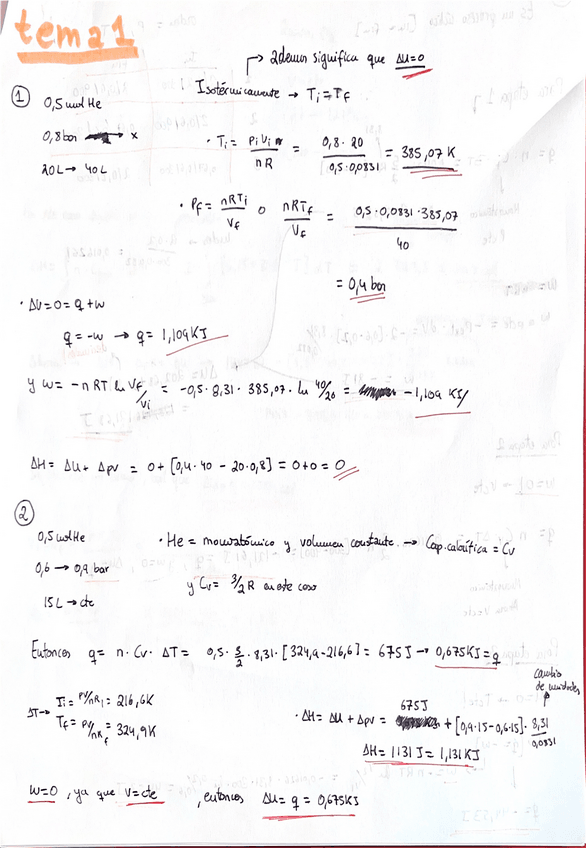 tema 1
→ 2 demun significa que ΔU=0
① 0,5 mol He
Isotérmicamente → Ti = Tf
0,8 bar → x
20L → 40L
• Ti = PiVi / nR = 0,8·20 / 0,5·0,0831 = 385,07 K
• Pf = nRTi / Vf o nRTf / Vf = 0,5·0,0831·385,07 / 40
= 0,4 bar
• ΔU = 0 = q + w
q = -w → q = 1,109 KJ
y w = -nRT ln Vf/Vi = -0,5·8,31·385,07·ln 40/20 = -1,109 KJ
ΔH = ΔU + Δpv = 0 + [0,4·40 - 20·0,8] = 0+0 = 0
②
0,5 mol He
• He = monoatómico y volumen constante. → Cap. calorífica = Cv
0,6 → 0,9 bar
y Cv = 3/2 R en este caso
15L → cte
Entonces q = n·Cv·ΔT = 0,5·3/2·8,31·[324,9-216,6] = 675 J → 0,675 KJ = q
cambio de unidades
ΔT → Ti = PV/nR i = 216,6K
Tf = PV/nR f = 324,9K
• ΔH = ΔU + Δpv = 675J + [0,9·15-0,6·15]· 8,31/0,0831
ΔH = 1131 J = 1,131 KJ
w=0, ya que V=cte, entonces ΔU = q = 0,675 KJ